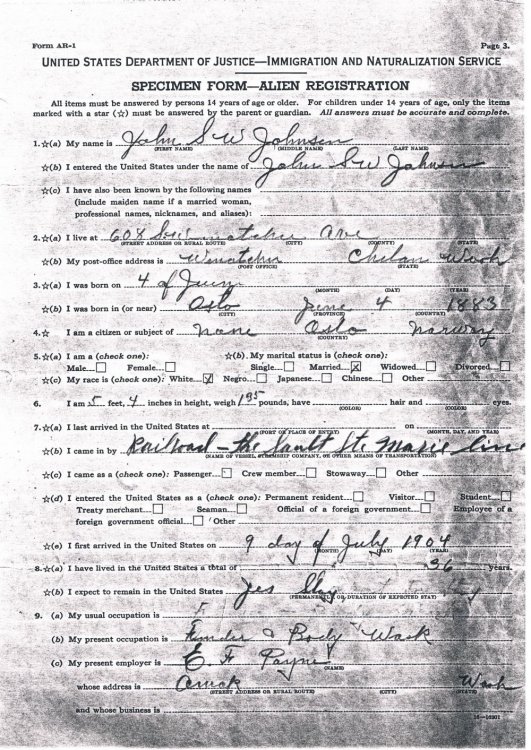 Form AR-1 Page 3.
UNITED STATES DEPARTMENT OF JUSTICE—IMMIGRATION AND NATURALIZATION SERVICE
SPECIMEN FORM—ALIEN REGISTRATION
All items must be answered by persons 14 years of age or older. For children under 14 years of age, only the items
marked with a star (☆) must be answered by the parent or guardian. All answers must be accurate and complete.
1.☆(a) My name is John S W Johnsen
(FIRST NAME) (MIDDLE NAME) (LAST NAME)
☆(b) I entered the United States under the name of John S W Johnsen
☆(c) I have also been known by the following names
(include maiden name if a married woman,
professional names, nicknames, and aliases):
2.☆(a) I live at 608 Ave
(STREET ADDRESS OR RURAL ROUTE) (CITY) (COUNTY) (STATE)
☆(b) My post-office address is Chelan Wash
(POST OFFICE) (STATE)
3.☆(a) I was born on 4 of
(MONTH) (DAY) (YEAR)
☆(b) I was born in (or near) Oslo June 4 1883
(CITY) (PROVINCE) (COUNTRY)
4.☆ I am a citizen or subject of none Oslo Norway
(COUNTRY)
5.☆(a) I am a (check one): ☆(b) My marital status is (check one):
Male Female Single Married X Widowed Divorced
☆(c) My race is (check one): White X Negro Japanese Chinese Other
6. I am 5 feet, 4 inches in height, weigh 195 pounds, have hair and eyes.
(COLOR) (COLOR)
7.☆(a) I last arrived in the United States at on
(PORT OR PLACE OF ENTRY) (MONTH, DAY, AND YEAR)
☆(b) I came in by Railroad - the Sault St. Marie line
(NAME OF VESSEL, STEAMSHIP COMPANY, OR OTHER MEANS OF TRANSPORTATION)
☆(c) I came as a (check one): Passenger Crew member Stowaway Other
☆(d) I entered the United States as a (check one): Permanent resident Visitor Student
Treaty merchant Seaman Official of a foreign government Employee of a
foreign government official Other
☆(e) I first arrived in the United States on 9 day of July 1904
(MONTH) (DAY) (YEAR)
8.☆(a) I have lived in the United States a total of 36 years.
☆(b) I expect to remain in the United States yes
(PERMANENTLY OR DURATION OF EXPECTED STAY)
9. (a) My usual occupation is
(b) My present occupation is Fender & Body Wark
(c) My present employer is E. F Payne
(NAME)
whose address is Omak Wash
(STREET ADDRESS OR RURAL ROUTE) (CITY) (STATE)
and whose business is
16—16301